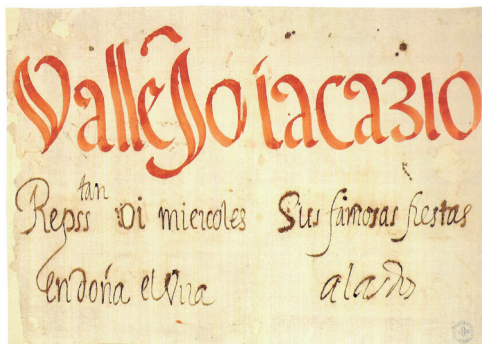 Vallejo iacazio
Repsstan oi miercoles Sus famosas fiestas
en doña elvira alas dos